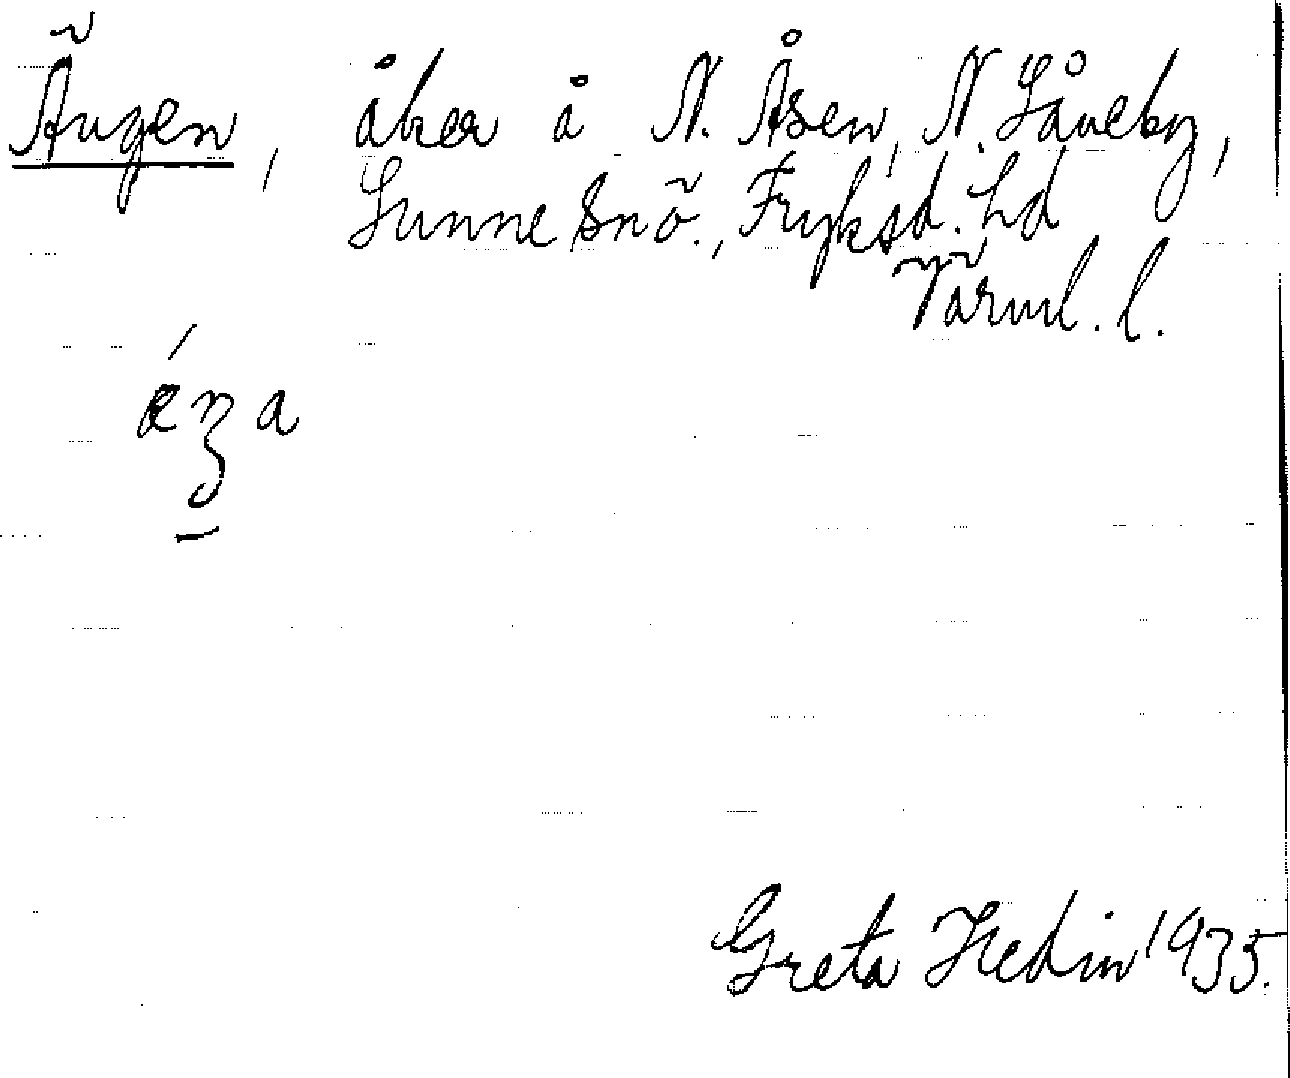 Ängen, åker å N. Åsen, N. Låneby,
Sunne snö., Fryksd. hd
Värml. l.
Greta Hedin 1935.